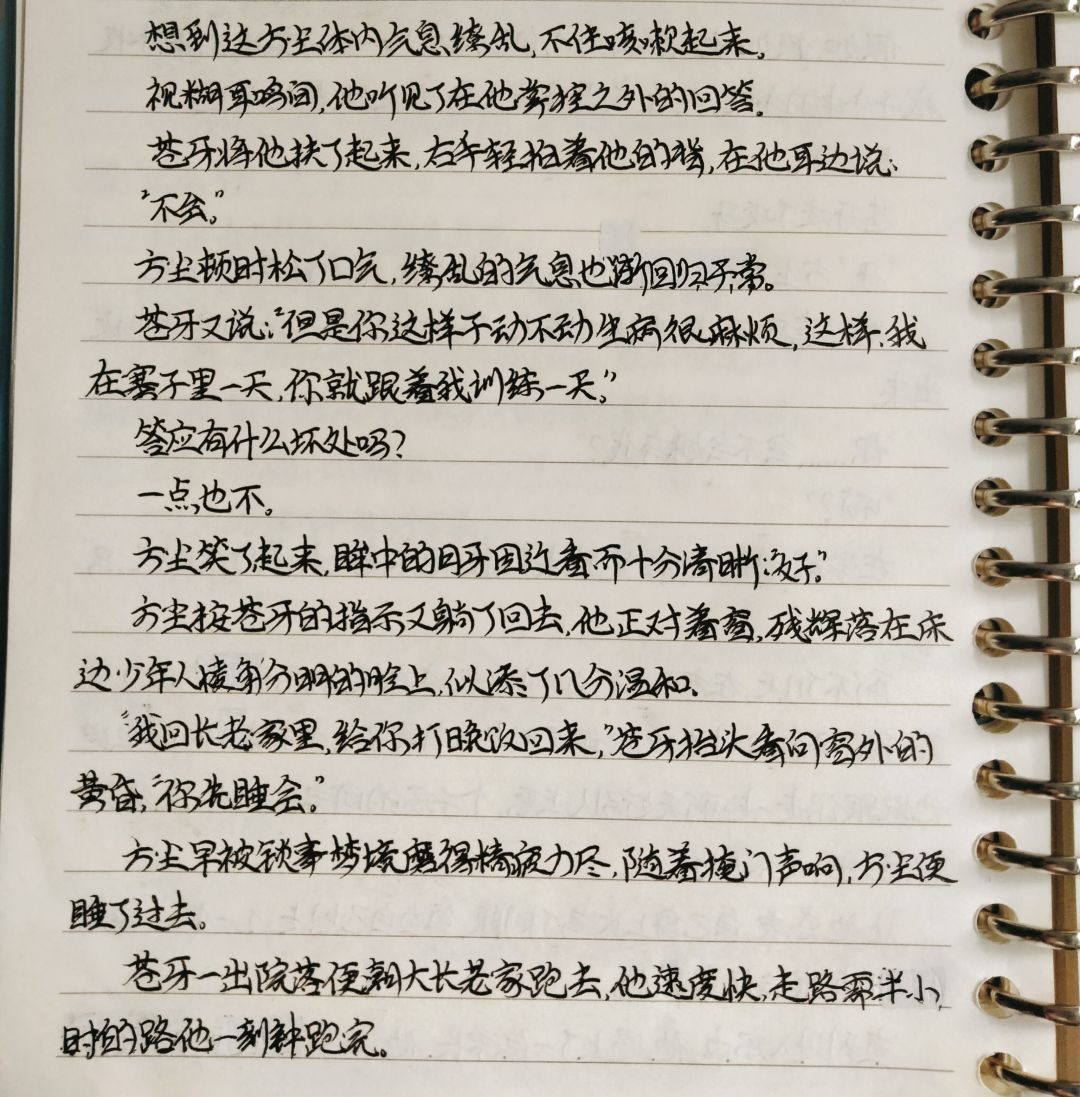 想到这方尘体内气息缭乱,不住咳嗽起来。
视糊耳鸣间,他听见了在他掌控之外的回答。
苍牙将他扶了起来,右手轻拍着他的背,在他耳边说:
"不会。"
方尘顿时松了口气,缭乱的气息也渐回归于常。
苍牙又说:"但是你这样子动不动生病很麻烦,这样,我
在寨子里一天,你就跟着我训练一天。"
答应有什么坏处吗?
一点也不。
方尘笑了起来,眸中的日牙因近看而十分清晰:"好。"
方尘按苍牙的指示又躺了回去,他正对着窗,残辉落在床
边少年人棱角分明的脸上,似添了几分温和。
"我回长老家里,给你打晚饭回来,"苍牙抬头看向窗外的
黄昏,"你先睡会。"
方尘早被锁事梦境磨得精疲力尽,随着掩门声响,方尘便
睡了过去。
苍牙一出院落便朝大长老家跑去,他速度快,走路需半小
时的路他一刻钟跑完。